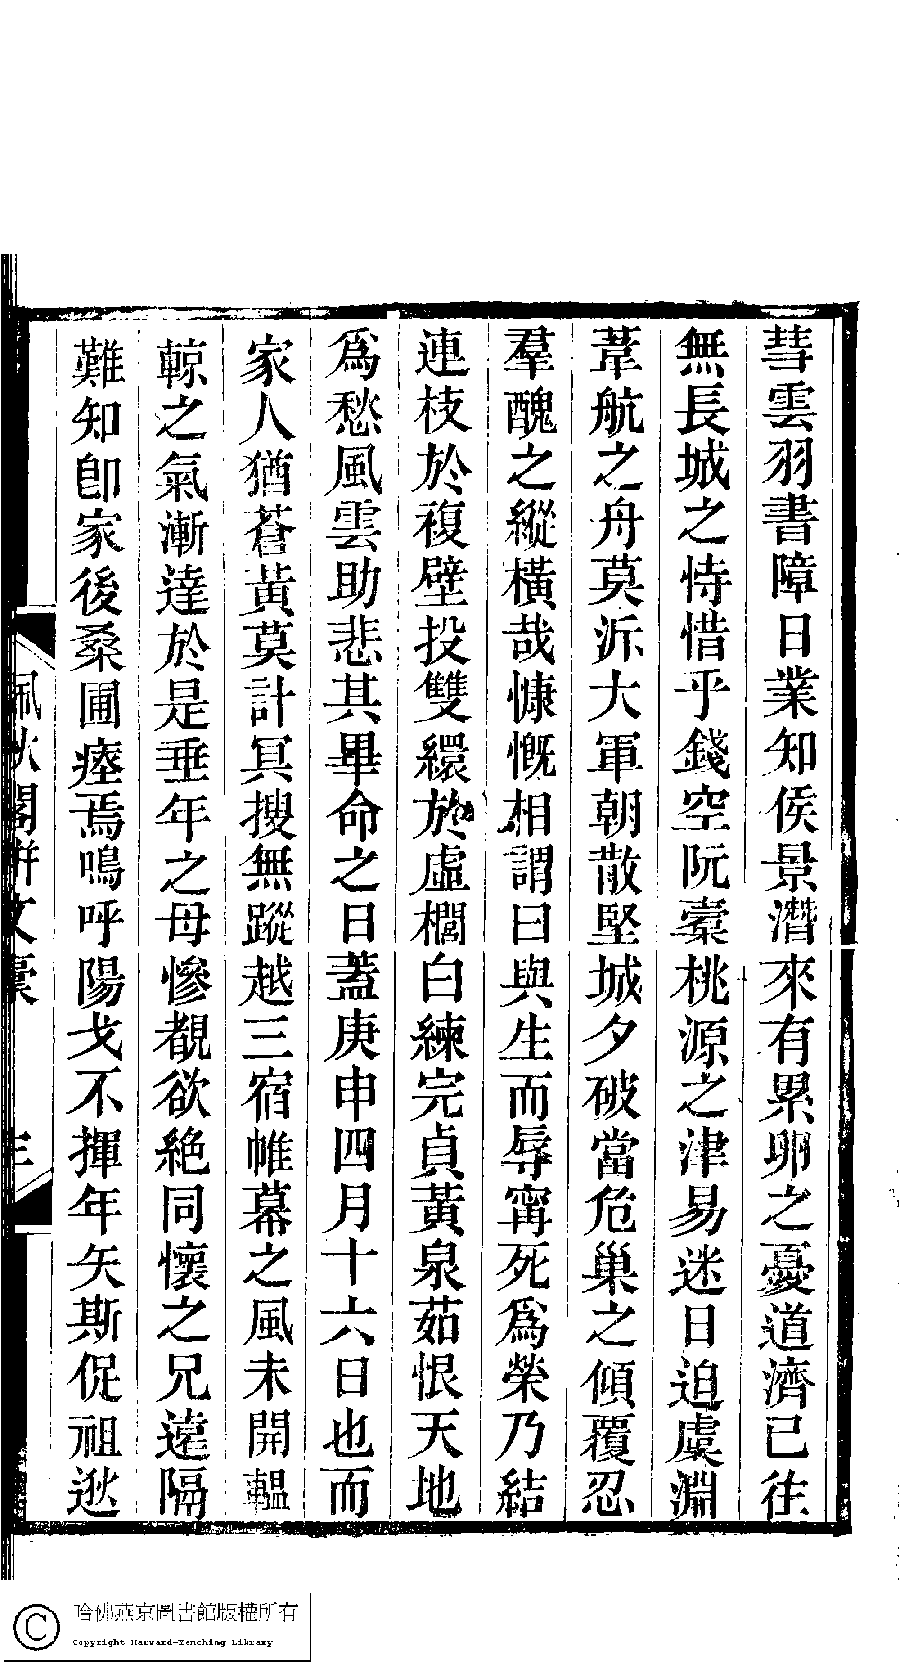 彗雲羽書障日業知侯景潛來有累卵之憂道濟已往
無長城之恃惜乎錢空阮橐桃源之津易迷日迫虞淵
葦航之舟莫泝大軍朝散堅城夕破當危巢之傾覆忍
羣醜之縱橫哉慷慨相謂曰與生而辱甯死爲榮乃結
連枝於複壁投雙繯於虛櫚白練完貞黃泉茹恨天地
爲愁風雲助悲其畢命之日蓋庚申四月十六日也而
家人猶蒼黃莫計冥搜無蹤越三宿帷幕之風未開轀
輬之氣漸達於是垂年之母慘覩欲絶同懷之兄遠隔
難知卽家後桑圃瘞焉嗚呼陽戈不揮年矢斯促祖逖
佩秋閣駢文稾 三
哈佛燕京圖書館版權所有
Copyright Harvard-Yenching Library